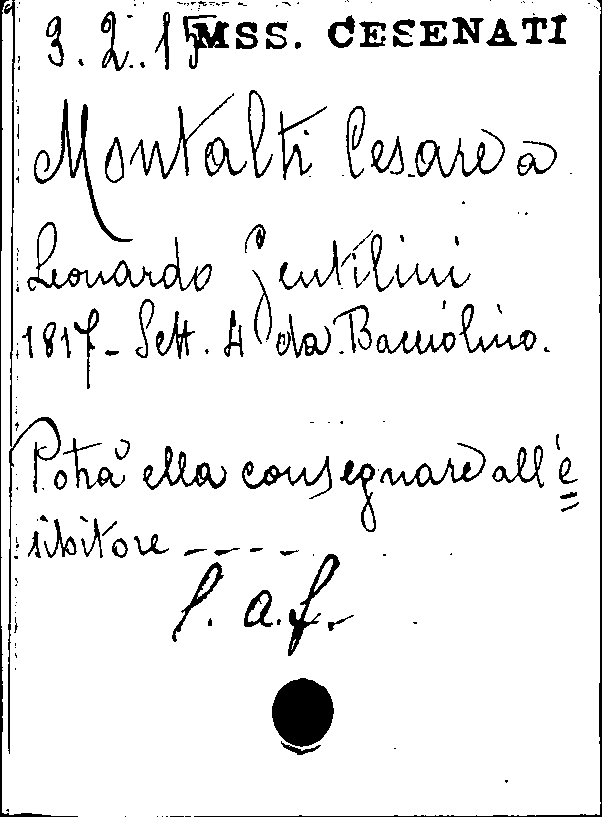 3.2.15 MSS. CESENATI
Montalti Cesare a
Leonardo Gentilini
1817- Sett. 4 da Bacciolino.
Potrà ella consegnare all'e=
sibitore ----
l. a. f.